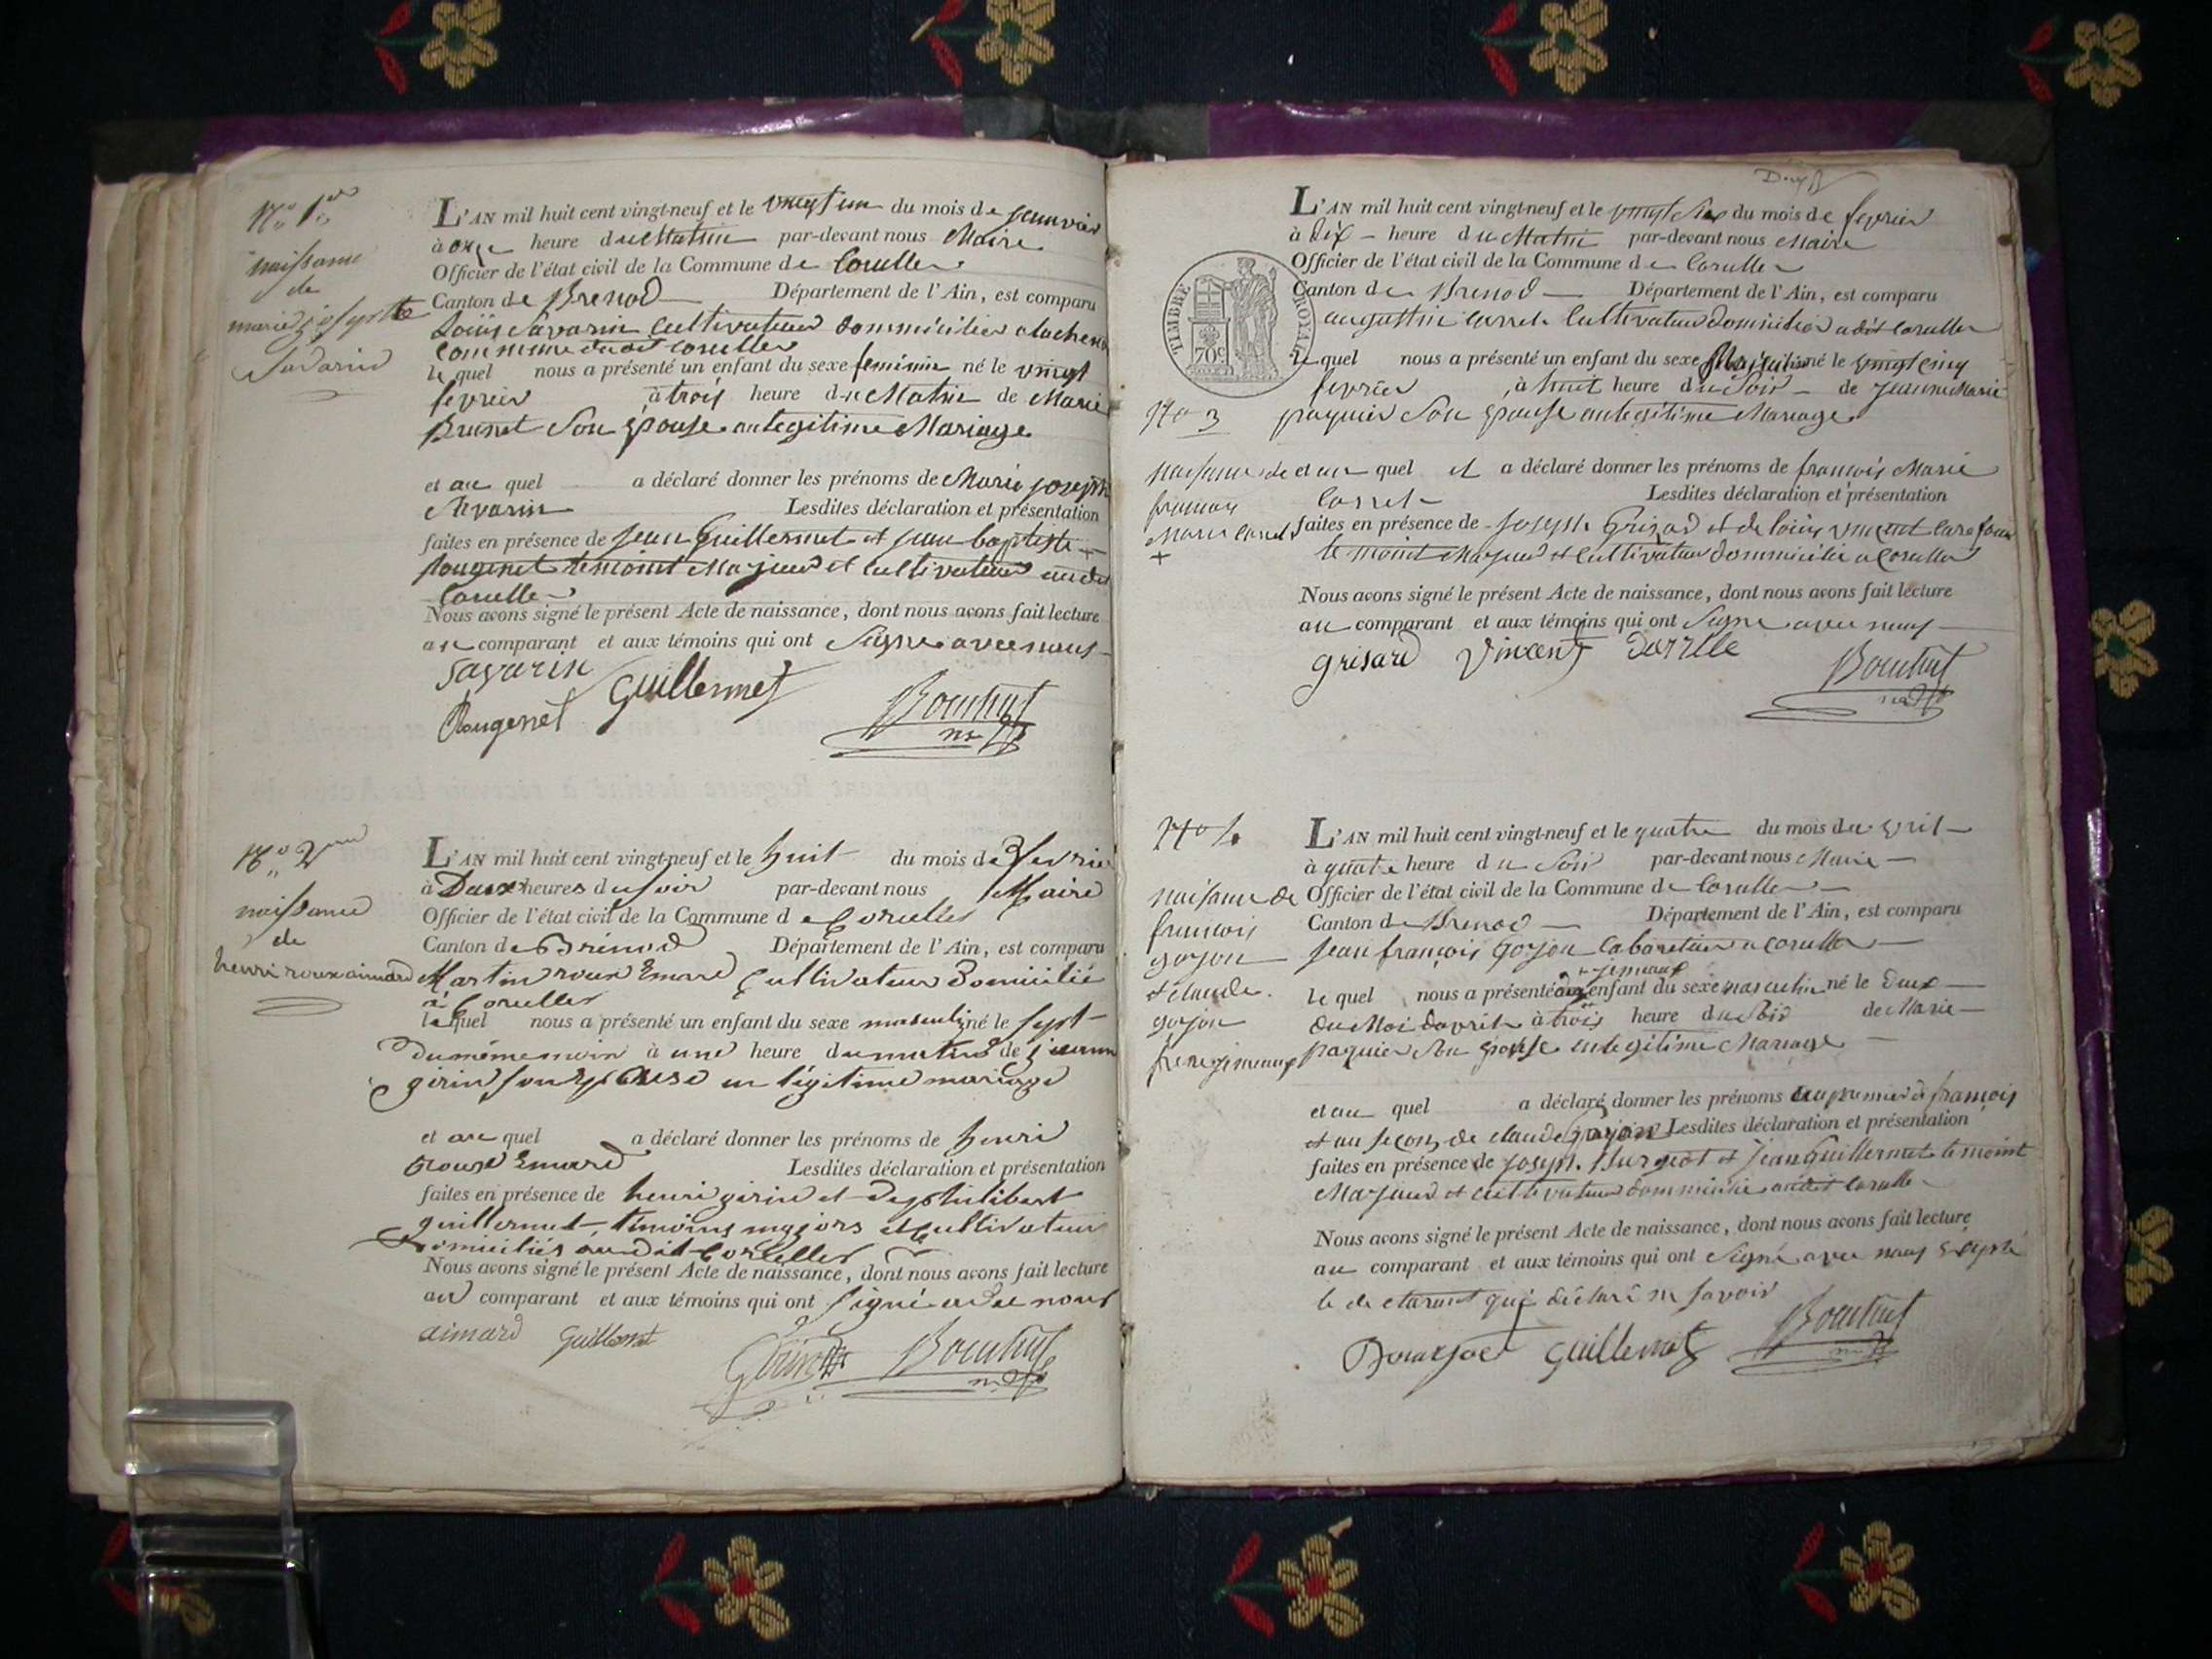 N° 1er
naissance
de
marie josephte
Savarin
L'AN mil huit cent vingt-neuf et le vingt un du mois de janvier
à onze heure du Matin par-devant nous Maire
Officier de l'état civil de la Commune de Corcelle
Canton de Brenod Département de l'Ain, est comparu
Louis Savarin Cultivateur dommicilier a
commune dudit corcelles
le quel nous a présenté un enfant du sexe feminin né le vingt
fevrier à trois heure du Matin de Marie
Brunet Son Epouse an legitime Mariage
et au quel a déclaré donner les prénoms de Marie joseph
Savarin Lesdites déclaration et présentation
faites en présence de jean Guillermet et jean baptiste
Rougenet temoint Majeur et Cultivateur audit
Corcelle
Nous avons signé le présent Acte de naissance, dont nous avons fait lecture
au comparant et aux témoins qui ont Signe avec nous
Savarin Guillermet
Rougenet Bouthut
N° 2me
naissance
de
henri roux aimard
L'AN mil huit cent vingt-neuf et le huit du mois de fevrier
à Deux heures du soir par-devant nous Maire
Officier de l'état civil de la Commune de Corcelles
Canton de Brénod Département de l'Ain, est comparu
Martin roux Emard Cultivateur Domicilié
à Corcelles
lequel nous a présenté un enfant du sexe masculin né le sept
du même mois à une heure du matin de jeanne
girin son Epouse en légitime mariage
et au quel a déclaré donner les prénoms de henri
Roux Emard Lesdites déclaration et présentation
faites en présence de henri girin et de philibert
guillermet témoins majors et Cultivateur
Domiciliés audit Corcelles
Nous avons signé le présent Acte de naissance, dont nous avons fait lecture
au comparant et aux témoins qui ont signé avec nous
aimard Guillermet
Girin Bouthut
TIMBRE ROYAL
70c
N° 3
naissance de
francois
Marie Carrel
+
L'AN mil huit cent vingt-neuf et le vingt six du mois de fevrier
à dix heure du Matin par-devant nous Maire
Officier de l'état civil de la Commune de Corcelle
Canton de Brenod Département de l'Ain, est comparu
augustin Carrel Cultivateur domicilier audit corcelle
le quel nous a présenté un enfant du sexe Masculin né le vingt cinq
fevrier à huit heure du Soir de jeanne Marie
paquier Son epouse an legitime Mariage
et au quel il a déclaré donner les prénoms de francois Marie
Carrel Lesdites déclaration et présentation
faites en présence de joseph Grisard et de louis vincent
temoint Majeur et Cultivateur dommicilié a Corcelle
Nous avons signé le présent Acte de naissance, dont nous avons fait lecture
au comparant et aux témoins qui ont Signe avec nous
grisard Vincent
Bouthut
N° 4
naissance de
francois
goyon
et claude
goyon
frere jimeaux
L'AN mil huit cent vingt-neuf et le quatre du mois d'avril
à quatre heure du Soir par-devant nous Maire
Officier de l'état civil de la Commune de Corcelle
Canton de Brenod Département de l'Ain, est comparu
jean françois goyon Cabaretier a corcelle
jimeaux
le quel nous a présenté enfant du sexe masculin né le deux
du Moi davril à trois heure du Soir de Marie
paquier Son epouse en legitime Mariage
et au quel a déclaré donner les prénoms au premier de françois
et au second de claude goyon Lesdites déclaration et présentation
faites en présence de joseph et jean Guillermet temoint
Majeur et cultivateur dommicilie audit corcelle
Nous avons signé le présent Acte de naissance, dont nous avons fait lecture
au comparant et aux témoins qui ont Signé avec nous excepté
le declarant qui a déclaré ne savoir
Guillermet Bouthut